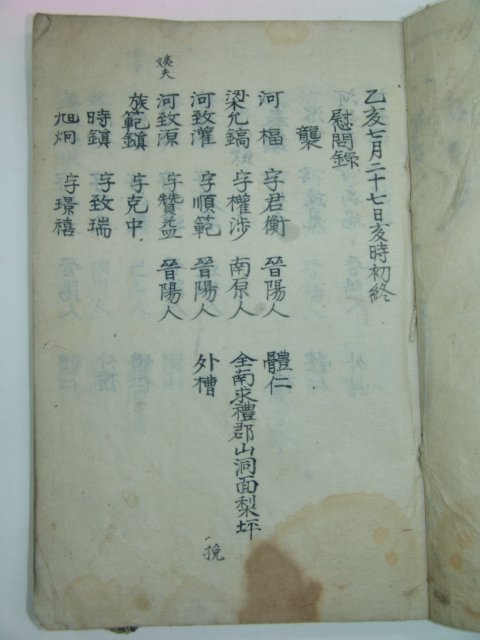 乙亥七月二十七日亥時初終
慰問錄
襲
河楅 字君衡 晉陽人 體仁
梁允鎬 字權涉 南原人 全南求禮郡山洞面梨坪 挽
河致灌 字順範 晉陽人 外槽
姨夫 河致源 字贊益 晉陽人
族範鎮 字克中
時鎮 字致瑞
旭炯 字璟禧